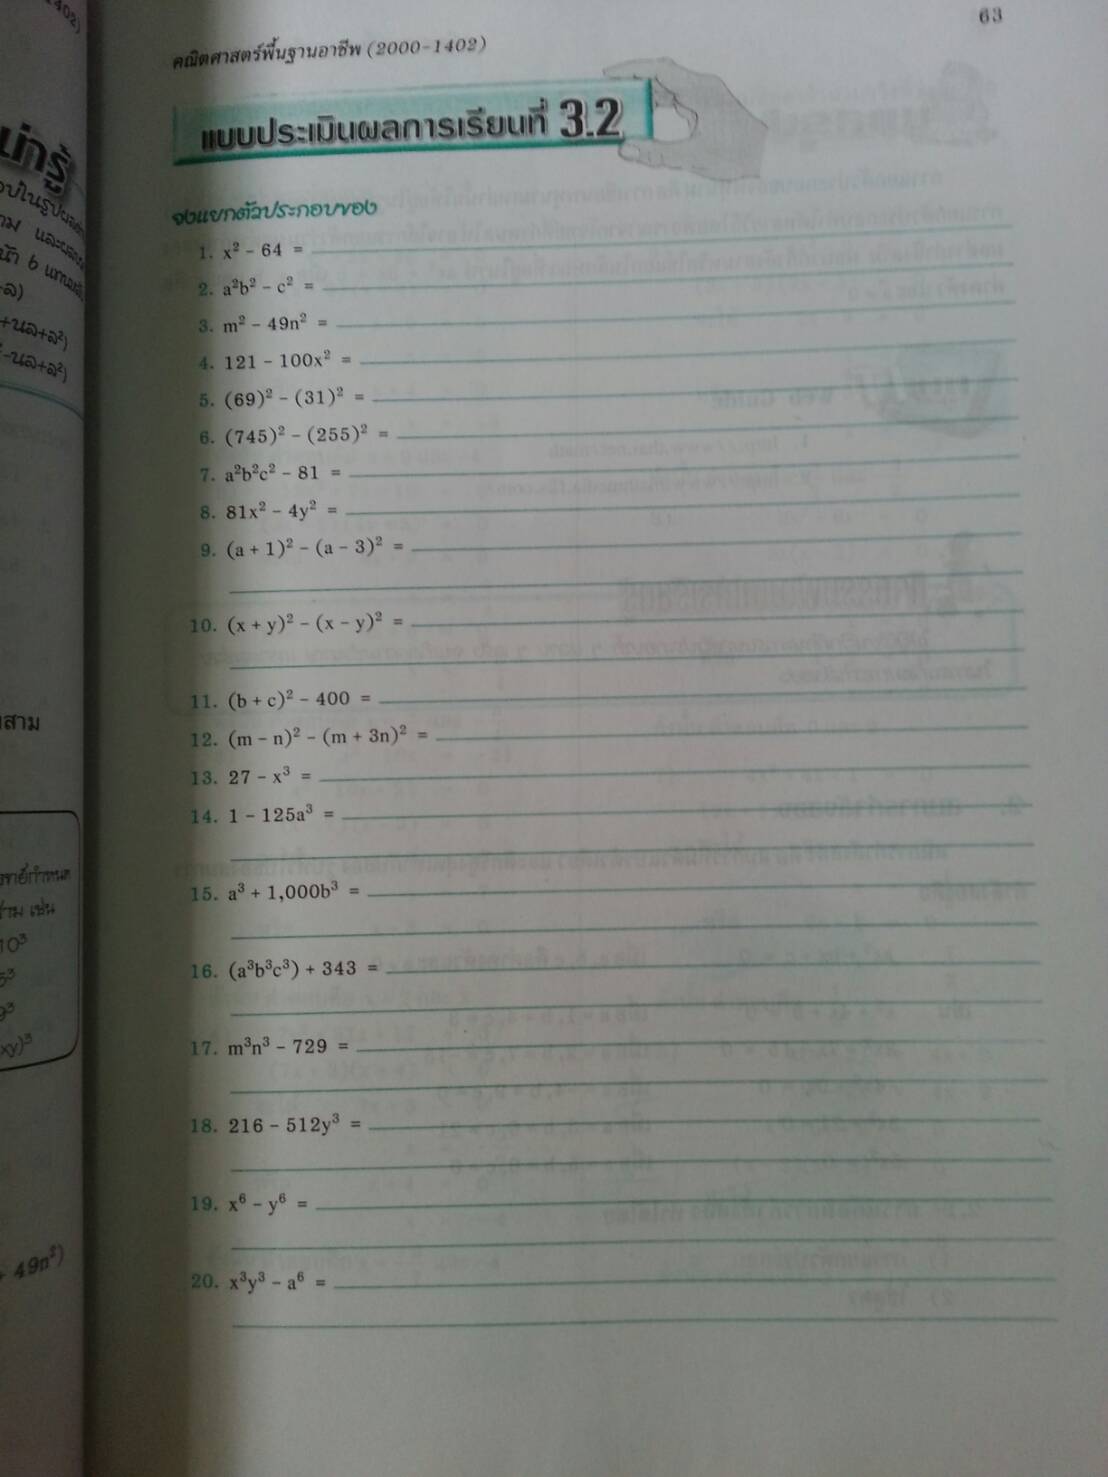 63
คณิตศาสตร์พื้นฐานอาชีพ (2000-1402)
แบบประเมินผลการเรียนที่ 3.2
จงแยกตัวประกอบของ
1. x² – 64 =
2. a²b² – c² =
3. m² – 49n² =
4. 121 – 100x² =
5. (69)² – (31)² =
6. (745)² – (255)² =
7. a²b²c² – 81 =
8. 81x² – 4y² =
9. (a + 1)² – (a – 3)² =
10. (x + y)² – (x – y)² =
11. (b + c)² – 400 =
12. (m – n)² – (m + 3n)² =
13. 27 – x³ =
14. 1 – 125a³ =
15. a³ + 1,000b³ =
16. (a³b³c³) + 343 =
17. m³n³ – 729 =
18. 216 – 512y³ =
19. x⁶ – y⁶ =
20. x³y³ – a⁶ =